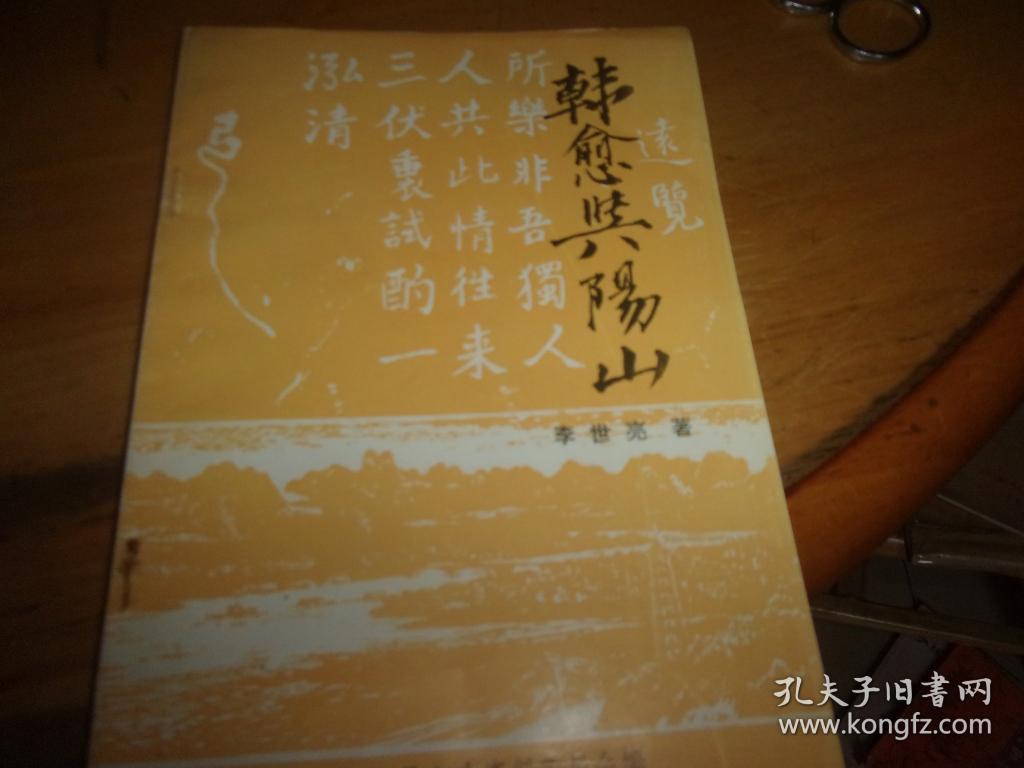 韓愈與陽山
遠覽
所樂非吾獨人
人共此情往来
三伏裏試酌一
泓清
李世亮 著
孔夫子旧書网
www.kongfz.com